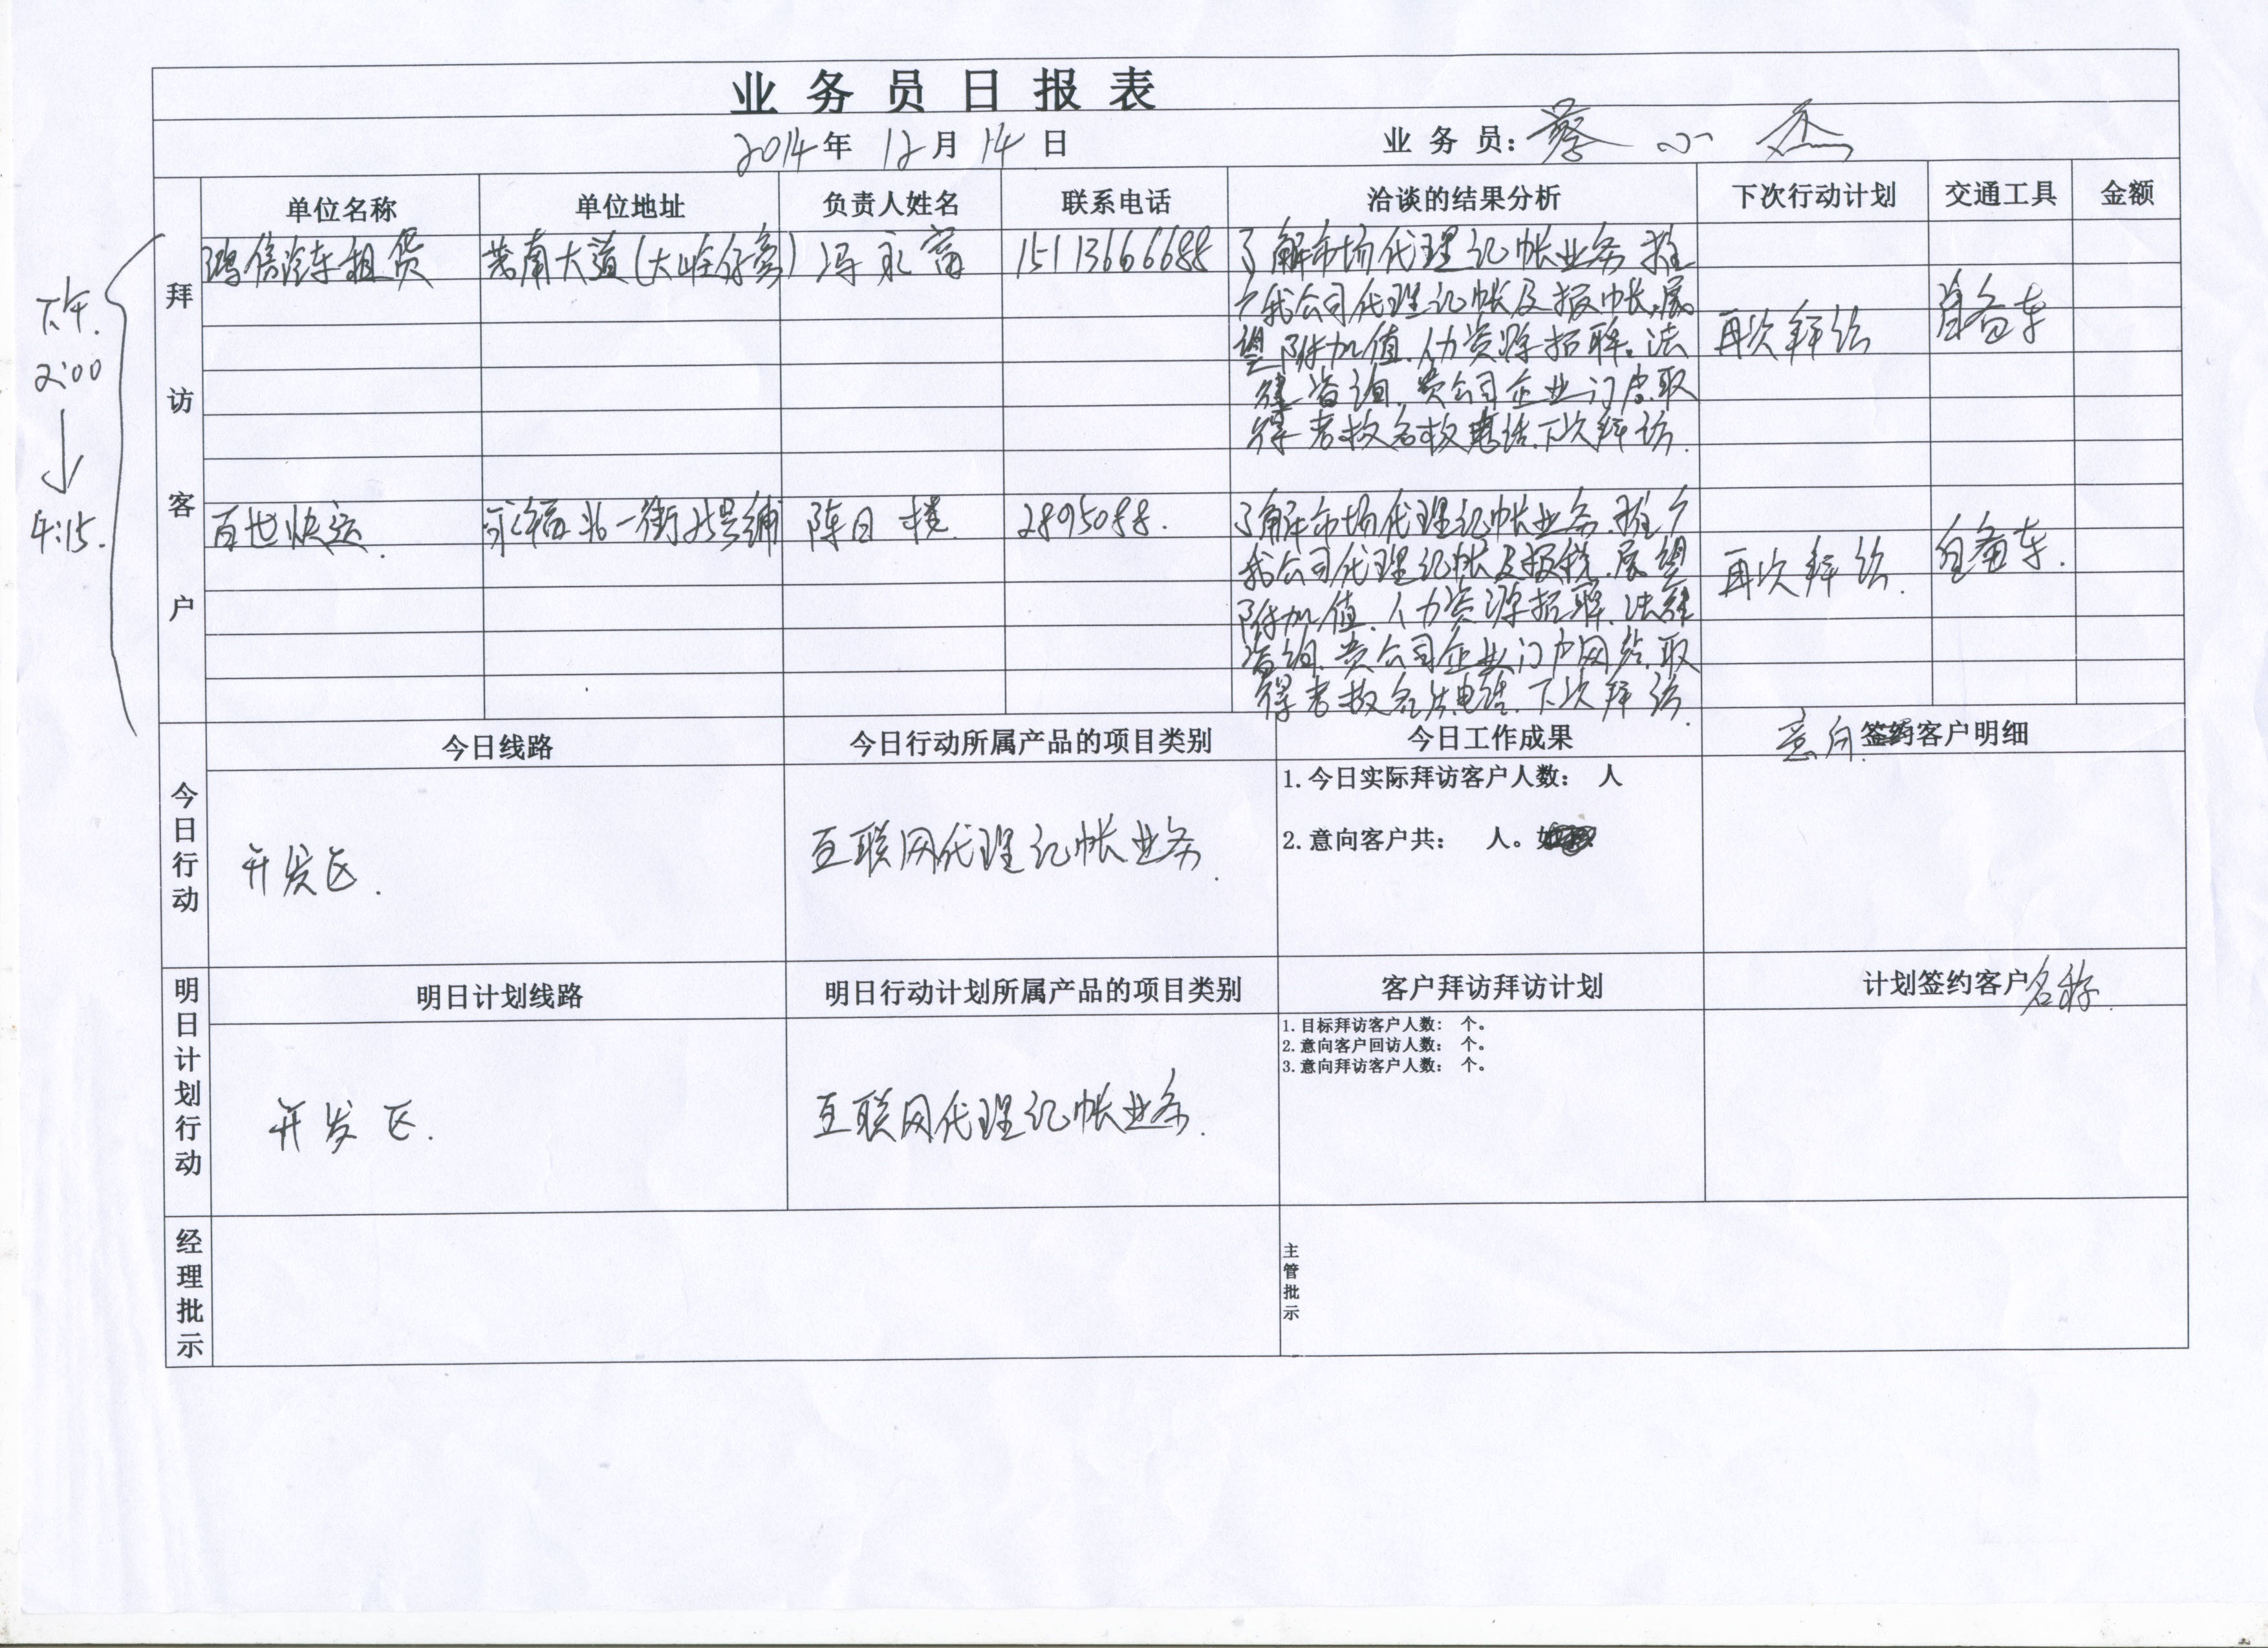 业务员日报表
2014年 12月 14日 业务员: 蔡小杰
单位名称 单位地址 负责人姓名 联系电话 洽谈的结果分析 下次行动计划 交通工具 金额
下午.
2:00
↓
4:15.
拜访客户
鸿信汽车租赁 茂南大道(大岭仔旁) 冯永富 15113666688
了解市场代理记帐业务 推
广我公司代理记帐及报帐.展
望附加值.人力资源招聘.法
律咨询.贵公司企业门户.取
得老板名板电话.下次拜访.
再次拜访 自备车
百世快运. 永福北一街25号铺 陈日 2895088.
了解市场代理记帐业务.推广
我公司代理记帐及报税.展望
附加值.人力资源招聘.法律
咨询.贵公司企业门户网站.取
得老板名片电话.下次拜访.
再次拜访. 自备车.
今日行动
今日线路 今日行动所属产品的项目类别 今日工作成果 意向.签约客户明细
开发区. 互联网代理记帐业务.
1.今日实际拜访客户人数: 人
2.意向客户共: 人。
明日计划行动
明日计划线路 明日行动计划所属产品的项目类别 客户拜访拜访计划 计划签约客户名称.
开发区. 互联网代理记帐业务.
1.目标拜访客户人数: 个。
2.意向客户回访人数: 个。
3.意向拜访客户人数: 个。
经理批示
主管批示